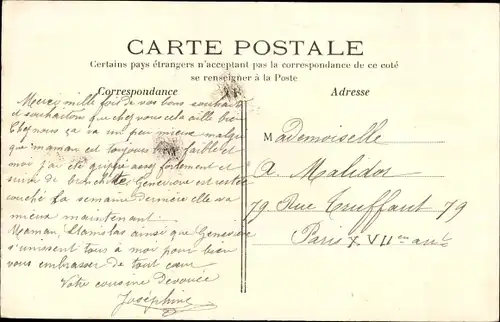 CARTE POSTALE
Certains pays étrangers n'acceptant pas la correspondance de ce coté
se renseigner à la Poste
Correspondance
Adresse
Merci mille fois de vos bons souhaits
et souhaitons que chez vous cela aille bien
Chez nous ça va un peu mieux malgré
que maman est toujours bien faible et
moi j'ai été grippé assez fortement et
suivi de bronchite Geneviève est restée
couché la semaine dernière elle va
mieux maintenant.
Maman, Stanislas ainsi que Geneviève
s'unissent tous à moi pour bien
vous embrasser de tout cœur
Votre cousine dévouée
Joséphine
Mademoiselle
A. Malidor
79 Rue Truffaut 79
Paris XVII